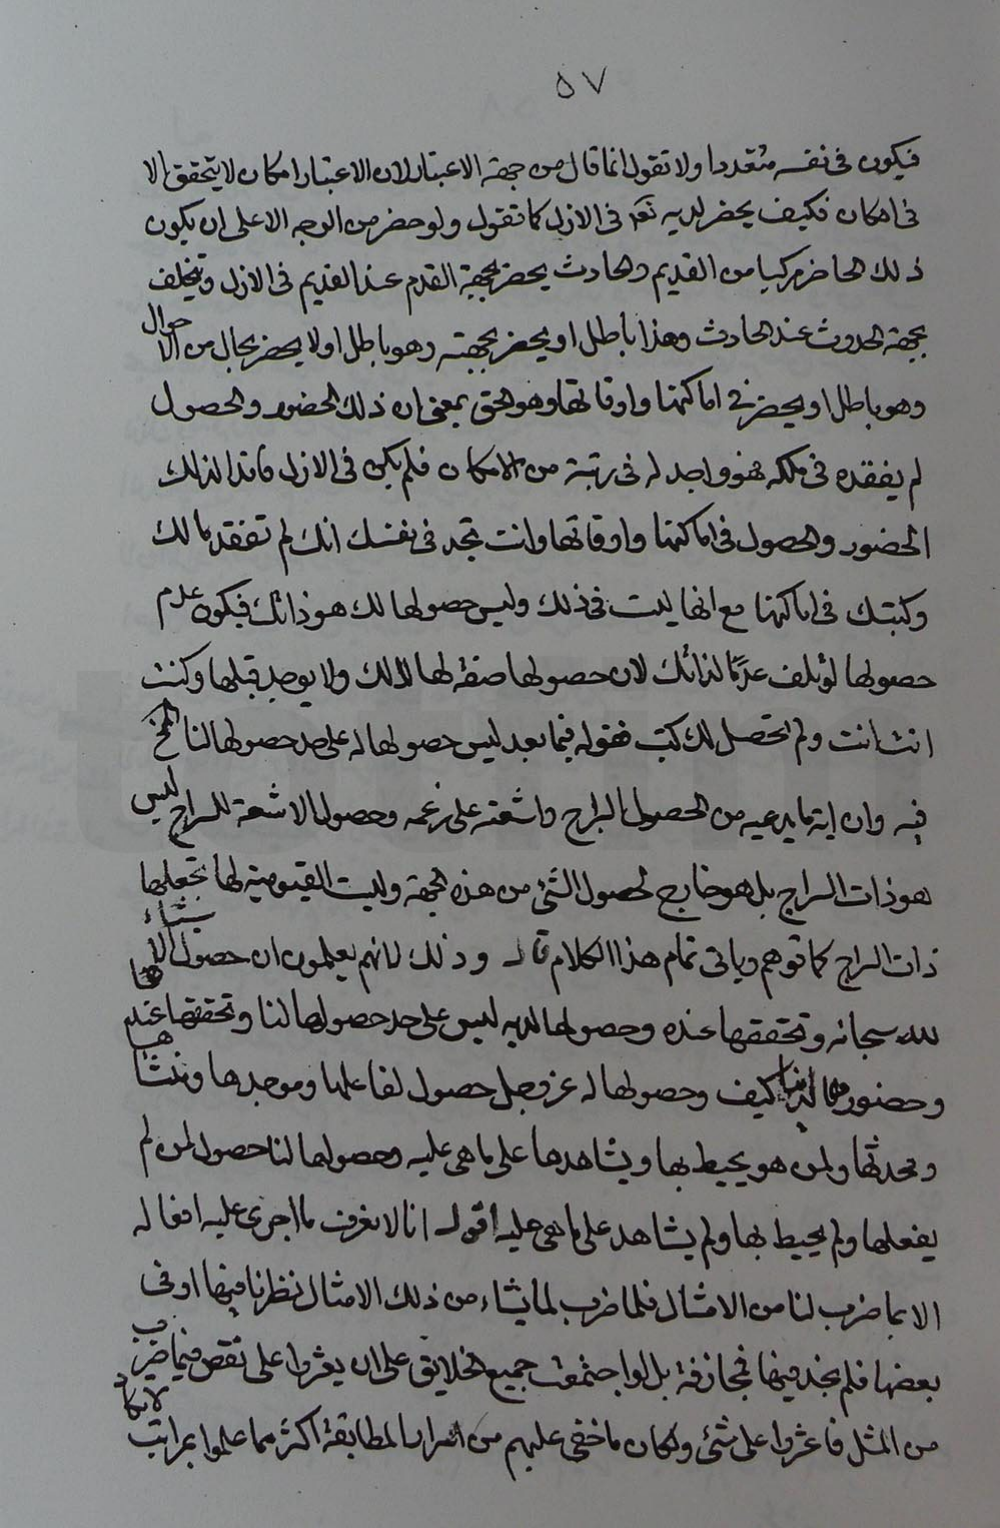 ٥٧
فيكون في نفسه متعددا ولا تقول انما قال من جهة الاعتبار لان الاعتبار امكان لا يتحقق الا
في امكان فكيف يحضر لديه تعـ في الازل كما تقول ولو حضر من الوجه الاعلى ان يكون
ذلك الحاضر مركبا من القديم والحادث يحضر بجهة القدم عند القديم في الازل ويتخلف
بجهة الحدوث عند الحادث وهذا باطل او يحضر بجهته وهو باطل او لا يحضر بحال من الاحوال
وهو باطل او يحضر في اماكنها واوقاتها وهو الحق بمعنى ان ذلك الحضور والحصول
لم يفقده في ملكه فهو واجد له في رتبة من الامكان فلم يكن في الازل فاقدا لذلك
الحضور والحصول في اماكنها واوقاتها وانت تجد في نفسك انك لم تفقد مالك
وكتبك في اماكنها مع انها ليست في ذلك وليس حصولها لك هو ذاتك فيكون عدم
حصولها لو تلف عدمًا لذاتك لان حصولها صفة لها لا لك ولا يوجد قبلها وكنت
انت انت ولم تحصل لك كتب فقوله فيما بعد ليس حصولها له على حد حصولها لنا الخ
فيه وان اية ما يدعيه من الحصول السراج واشعته على زعمه وحصول الاشعة للسراج ليس
هو ذات السراج بل هو خارج لحصول الشئ من هذه الجهة وليست القيومية لها بجعلها
ذات السراج كما توهم وياتي تمام هذا الكلام قال وذلك لانهم يعلمون ان حصول الاشياء
لله سبحانه وتحققها عنده وحصولها لديه ليس على حد حصولها لنا وتحققها عندنا
وحضورها لدينا كيف وحصولها له عز وجل حصول لفاعلها وموجدها ومنشأها
ومحدثها ولمن هو يحيط بها ويشاهدها على ما هي عليه وحصولها لنا حصول لمن لم
يفعلها ولم يحيط بها ولم يشاهد على ما هي عليه اقول انا لا نعرف ما اجرى عليه افعاله
الا بما ضرب لنا من الامثال فلما ضرب لما يشاء من ذلك الامثال نظرنا فيها او في
بعضها فلم نجد فيها مجازفة بل لو اجتمعت جميع الخلايق على ان يعثروا على نقص فيما ضرب
من المثل فما عثروا على شئ ولكان ما خفي عليهم من اسرار المطابقة اكثر مما علموا بمراتب